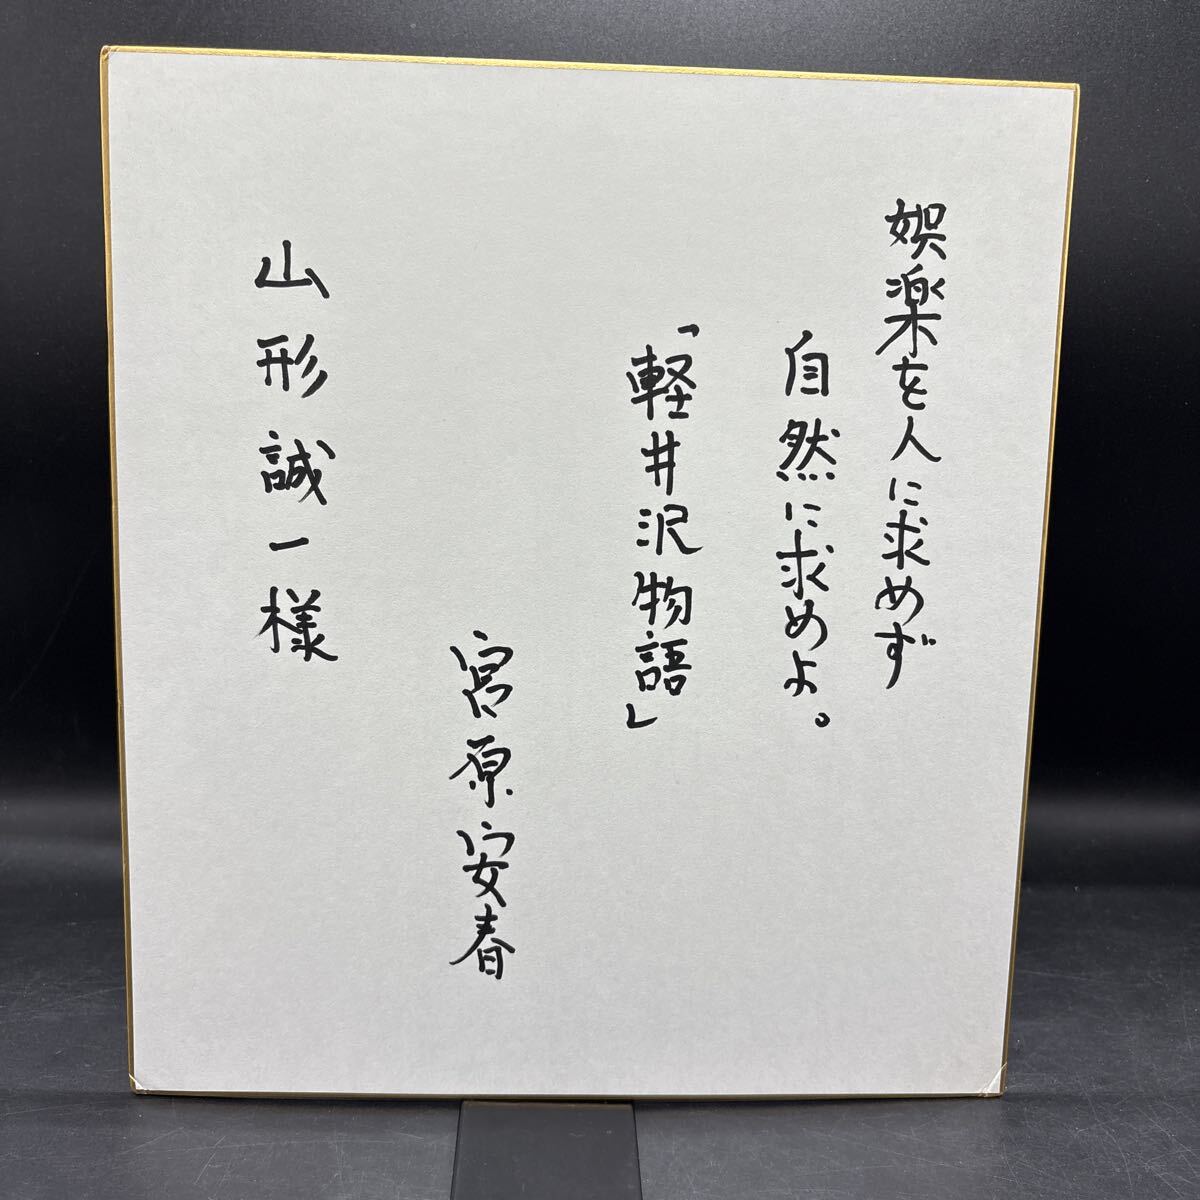 娯楽を人に求めず
自然に求めよ。
「軽井沢物語」
宮原安春
山形誠一様